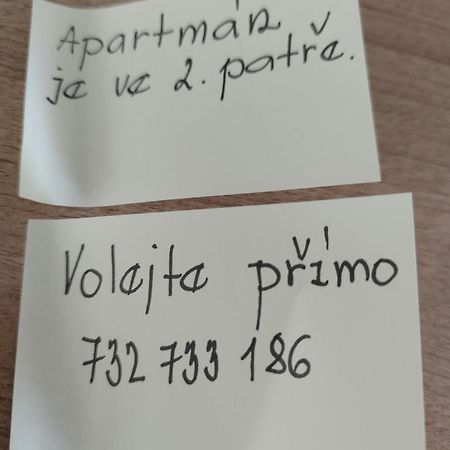 Apartmán
je ve 2. patře.
Volejte přímo
732 733 186